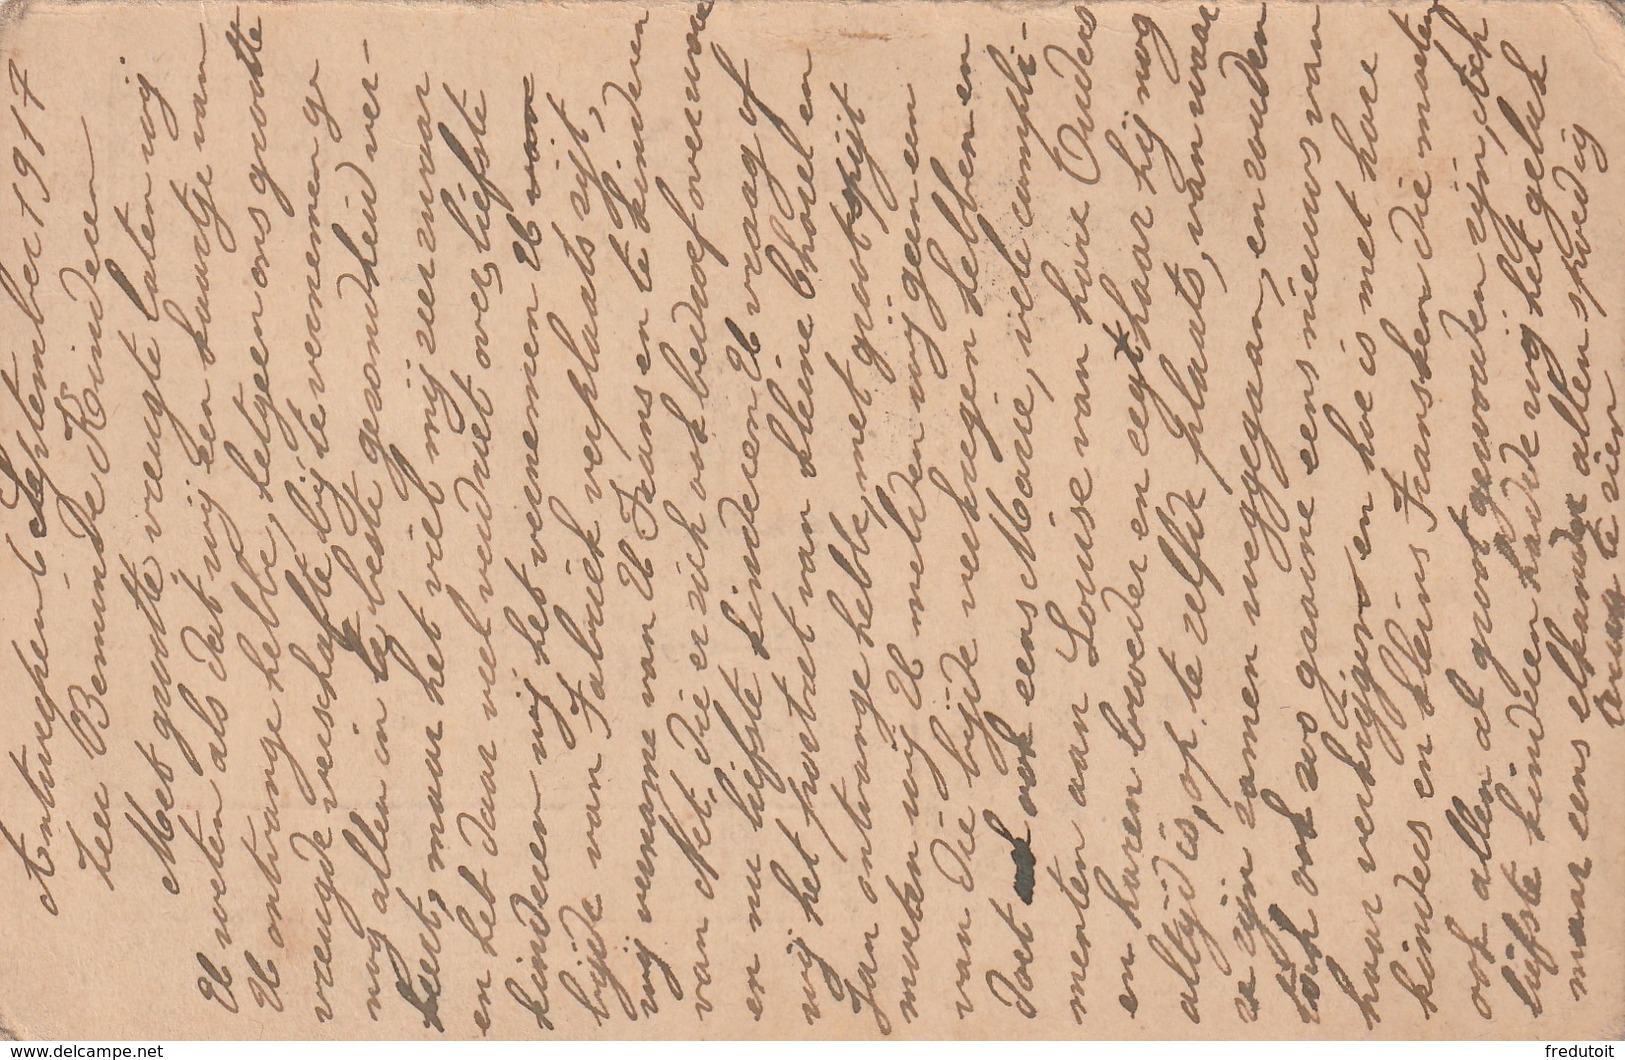 Antwerpen 6 September 1917
Zeer Beminde Kinderen
Met groote vreugte laten wij
U weten als dat wij een kaartje van
U ontvange hebbe, hetgeen ons groote
vreugde verschafte bij te vernemen ge
nog allen in te beste gezondheid ver-
keert, maar het viel mij zeer zwaar
en het daar veel verdriet over, liefste
kinderen wij het vernemen U
bijde van Fabriek verplaats zijt,
wij vername van U Frans en te kinderen
van Net, die er zich ook bedroef over
en nu liefste kinderen U vraag of
wij het portret van kleine bhoel en
Jan ontvange hebbe, met groot spijt
moeten wij U melden wij geen een
van die bijde verkregen hebben en
doet ook eens Marie, vele compli-
menten aan Louise van hare Ouders
en haren broeder en zegt haar hij nog
altijd is, op te zelfde plaats, van waar
ze zijn zamen weggegaan, en zouden
toch ook zoo gaarne eens nieuws van
haar verkrijgen en hoe is met hare
kindes en kleins Fransken die moeten
ook allen al groot geworden zijn, ach
liefste kinderen hadde wij het geluk
maar eens elkander allen spoedig
weer te zien
www.delcampe.net
fredutoit